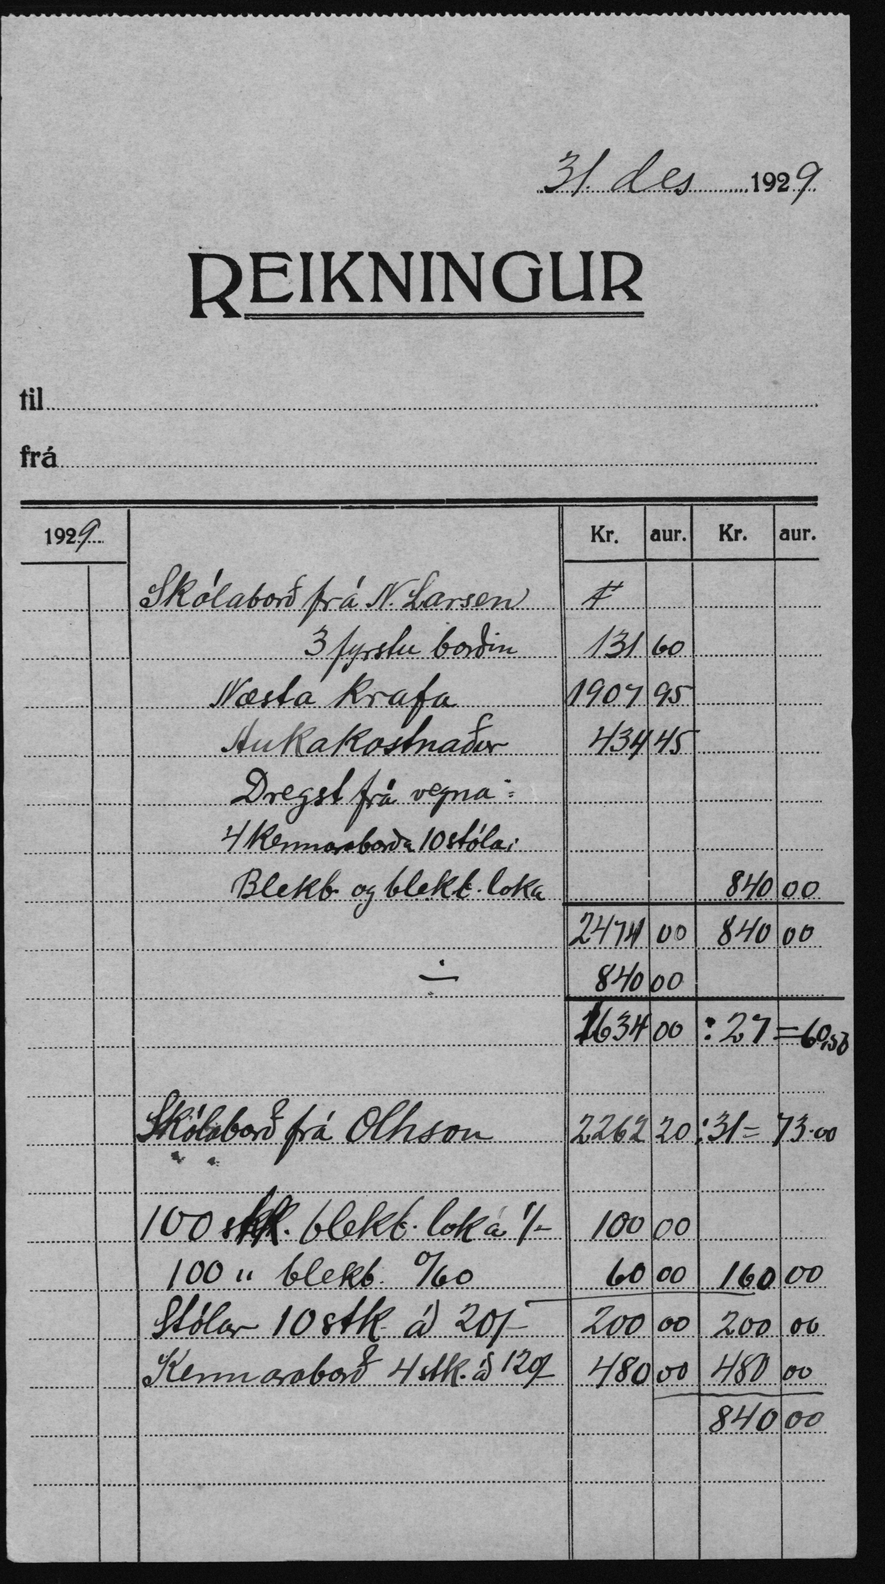 31. des 1929
REIKNINGUR
til
frá
1929 Kr. aur. Kr. aur.
Skólaborð frá N. Larsen
3 fyrstu borðin 131 60
Næsta krafa 1907 95
Aukakostnaður 434 45
Dregst frá vegna:
4 Kennaraborða 10 stóla;
Blekb. og blekb. loka 840 00
2474 00 840 00
÷ 840 00
1634 00 : 27 = 60,
Skólaborð frá Olhson 2262 20 : 31 = 73.00
100 stk. blekb. loka á 1/- 100 00
100 " blekb. 0/60 60 00 160 00
Stólar 10 stk á 20/- 200 00 200 00
Kennaraborð 4 stk. á 120/ 480 00 480 00
840 00